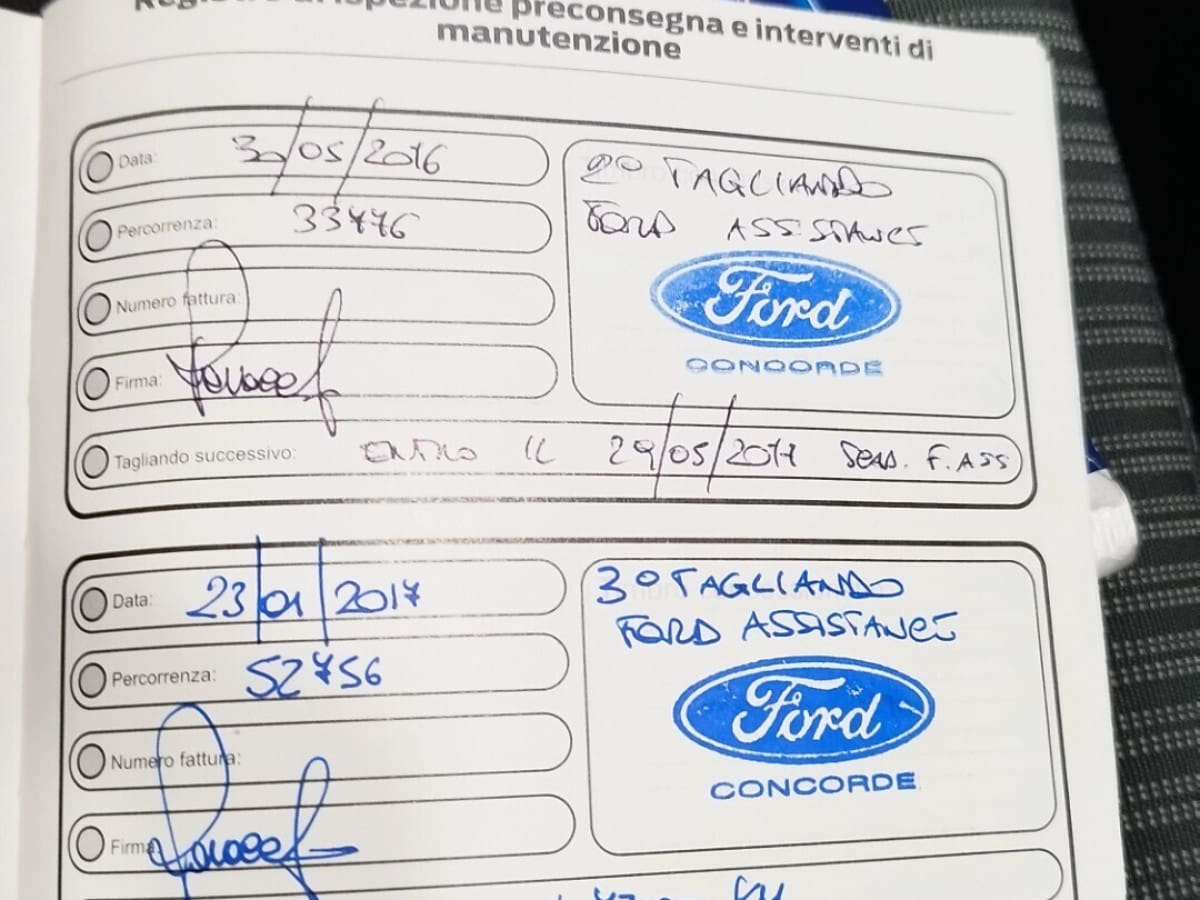 Registro di ispezione preconsegna e interventi di
manutenzione
Data: 30/05/2016
Percorrenza: 33776
Numero fattura:
Firma:
Tagliando successivo: ENTRO IL 29/05/2017 SENS. F. ASS
2° TAGLIANDO
FORD ASSISTANCE
Ford
CONCORDE
Data: 23/01/2017
Percorrenza: 52756
Numero fattura:
Firma:
3° TAGLIANDO
FORD ASSISTANCE
Ford
CONCORDE